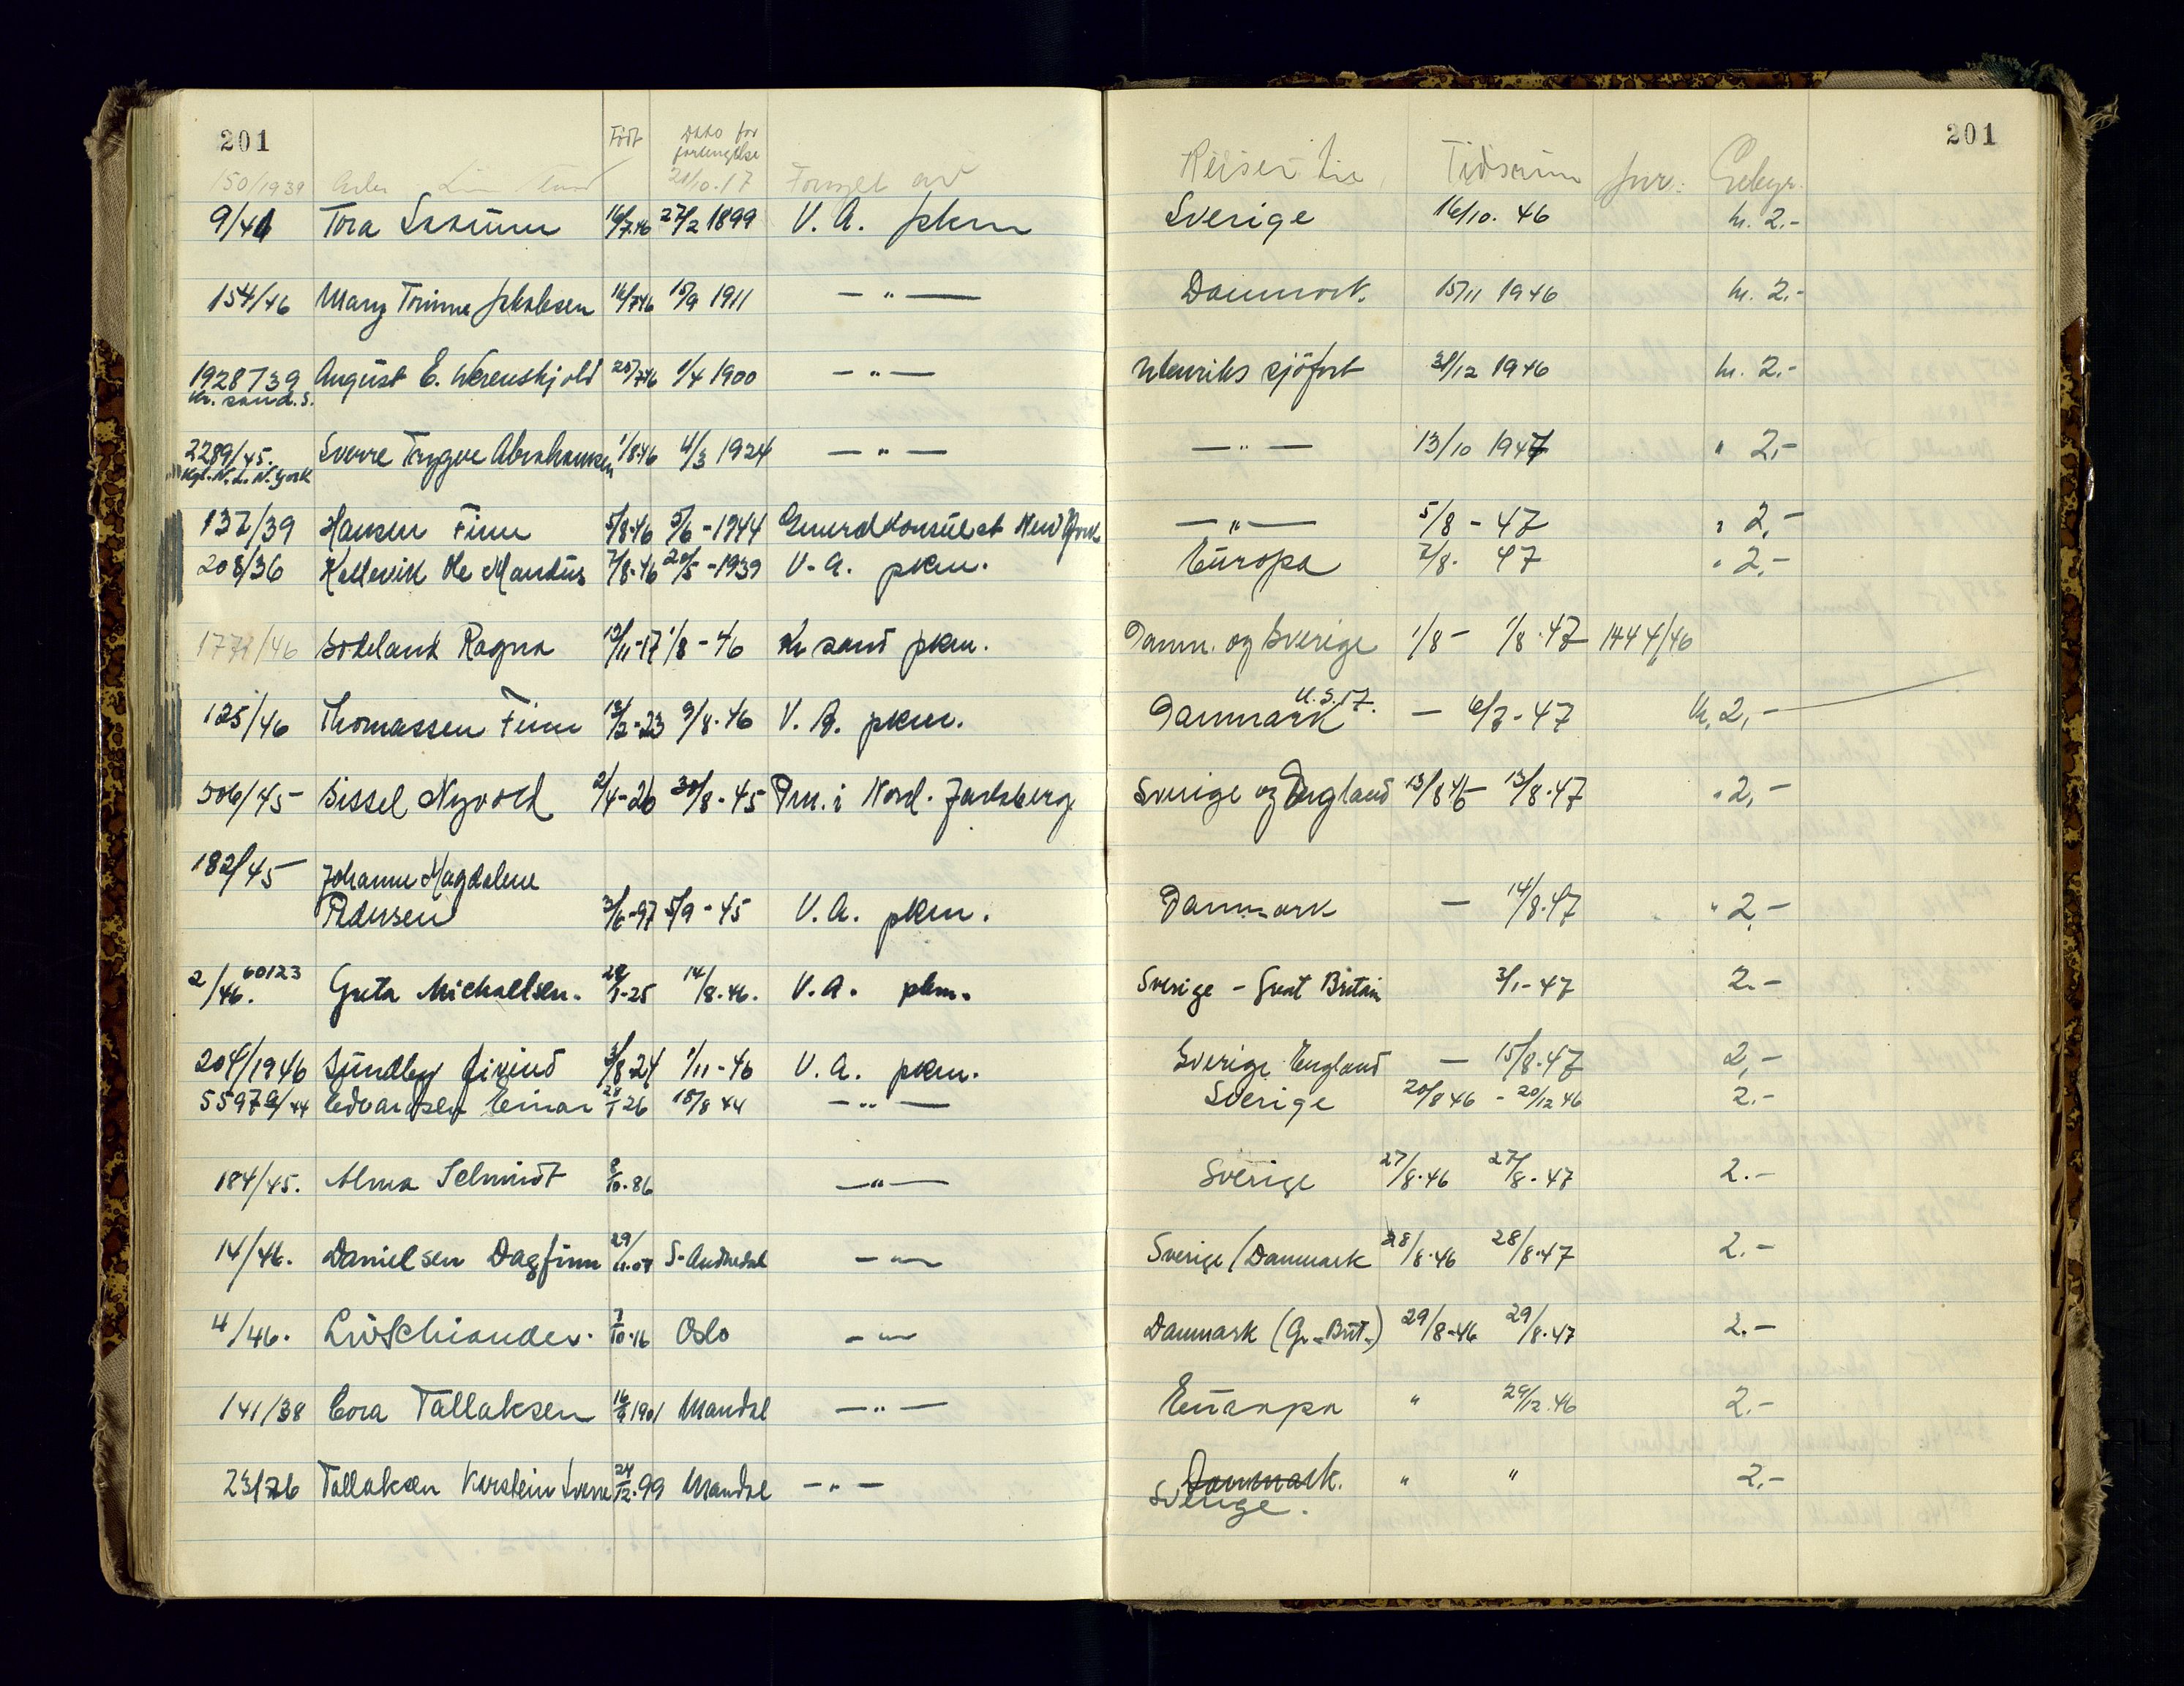 201
201
Født
Dato for
forlengelse
Reiser til
Tidsrum
Jnr:
Gebyr.
150/1939
21/10.17
9/41 Tora 16/7.46 27/2 1899 V. A. pkm Sverige 16/10. 46 kr. 2.-
154/46 Mary Trinne Jakobsen 16/7 46 15/9 1911 — " — Danmark. 15/11 1946 kr. 2.-
1928/39 August E. Werenskjold 25/7 46 1/4 1900 — " — Utenriks sjöfart 31/12 1946 kr. 2.-
Kr. sand. S.
2289/45. Sverre Trygve Abrahamsen 1/8 46 4/3 1924 — " — — " — 13/10 1947 " 2,-
Kgl. N. L. N. York
137/39 Hansen Finn 5/8-46 5/6 - 1944 Generalkonsulat New York — " — 5/8 - 47 " 2,-
208/36 Kallevik Ole Mandius 7/8-46 20/5 - 1939 V. A. pkm. Europa 7/8. 47 " 2.-
1771/46 Sodeland Ragna 12/11-17 1/8 - 46 Kr sand pkm. Danm. og Sverige 1/8 - 1/8.47 1444/46
U.S.A.
125/46 Thomassen Finn 12/2-23 9/8-46 V. A. pkm. Danmark — 6/7-47 kr. 2,-
506/45 Sissel Nyvold 2/4-26 30/8-45 Pm. i Nord. Jarlsberg Sverige og England 13/8 46 - 13/8.47 " 2,-
182/45 Johanne Magdalene
Pedersen 3/6-97 5/9-45 V. A. pkm. Danmark — 14/8.47 " 2,-
2/46. 60123 Greta Michaelsen. 28/1-25 14/8.46. V. A. pkm. Sverige - Great Britain 3/1-47 2.-
204/1946 Sundby Eivind 3/8-24 1/11-46 V. A. pkm. Sverige England — 15/8.47 2,-
55972/44 Edvardsen Einar 28/1 26 18/8 44 — " — Sverige 20/8 46 - 20/12 46 2.-
184/45. Alma Schmidt 8/10.86 — " — Sverige 27/8.46 27/8.47 2.-
14/46. Danielsen Dagfinn 29/11.07 S-Audnedal — " — Sverige/Danmark 28/8.46 28/8.47 2.-
4/46. Liv Schiander. 7/10.16 Oslo — " — Danmark (Gr.-Brit.) 29/8-46 29/8.47 2.-
141/38 Cora Tallaksen 16/9 1901 Mandal — " — Europa " 29/12.46 2.-
23/26 Tallaksen Karstein Sverre 24/12.99 Mandal — " — Danmark. " " 2.-
Sverige.